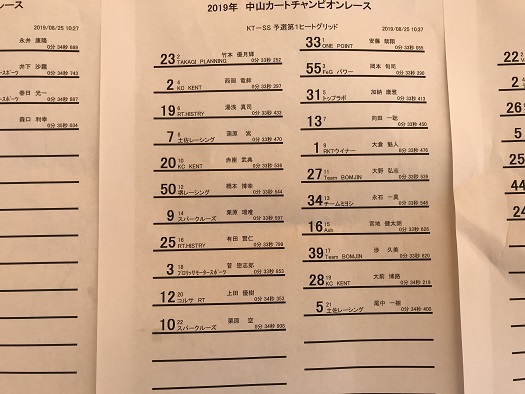 2019年 中山カートチャンピオンレース
KT－SS 予選第1ヒートグリッド
2019/08/25 10:37
33 1 安藤 敬翔
ONE POINT 0分 33秒 055
23 2 竹本 優月輝
TAKAGI PLANNING 0分 33秒 252
55 3 岡本 旬司
FxG パワー 0分 33秒 290
2 4 西岡 竜鉾
KC KENT 0分 33秒 297
31 5 加納 康雅
トップラボ 0分 33秒 413
19 6 湯浅 真司
RT.HISTRY 0分 33秒 433
13 7 向田 一聡
0分 33秒 450
7 8 蒲原 嵩
土佐レーシング 0分 33秒 470
1 9 大倉 魁人
RKTウイナー 0分 33秒 476
20 10 赤座 武典
KC KENT 0分 33秒 536
27 11 大野 弘志
Team BOMJIN 0分 33秒 536
50 12 橋本 博幸
堺レーシング 0分 33秒 544
34 13 永石 一真
チームミヨシ 0分 33秒 548
9 14 栗原 増雅
スパークルーズ 0分 33秒 597
16 15 宮地 健太朗
Ash 0分 33秒 626
25 16 有田 賢仁
RT.HISTRY 0分 33秒 799
39 17 捗 久美
Team BOMJIN 0分 33秒 820
3 18 菅 恕志郎
プロリッサモータースポーツ 0分 33秒 853
28 19 大前 博路
KC KENT 0分 34秒 219
12 20 上田 優樹
コルサ RT 0分 34秒 353
5 21 尾中 一樹
土佐レーシング 0分 34秒 400
10 22 栗原 空
スパークルーズ 0分 34秒 905
レース
2019/08/25 10:37
永井 康陽
0分 34秒 689
井下 沙羅
スポーツ 0分 34秒 743
春日 光一
ースポーツ 0分 34秒 967
森口 利幸
0分 35秒 034
22
2
26
5
25
44
24